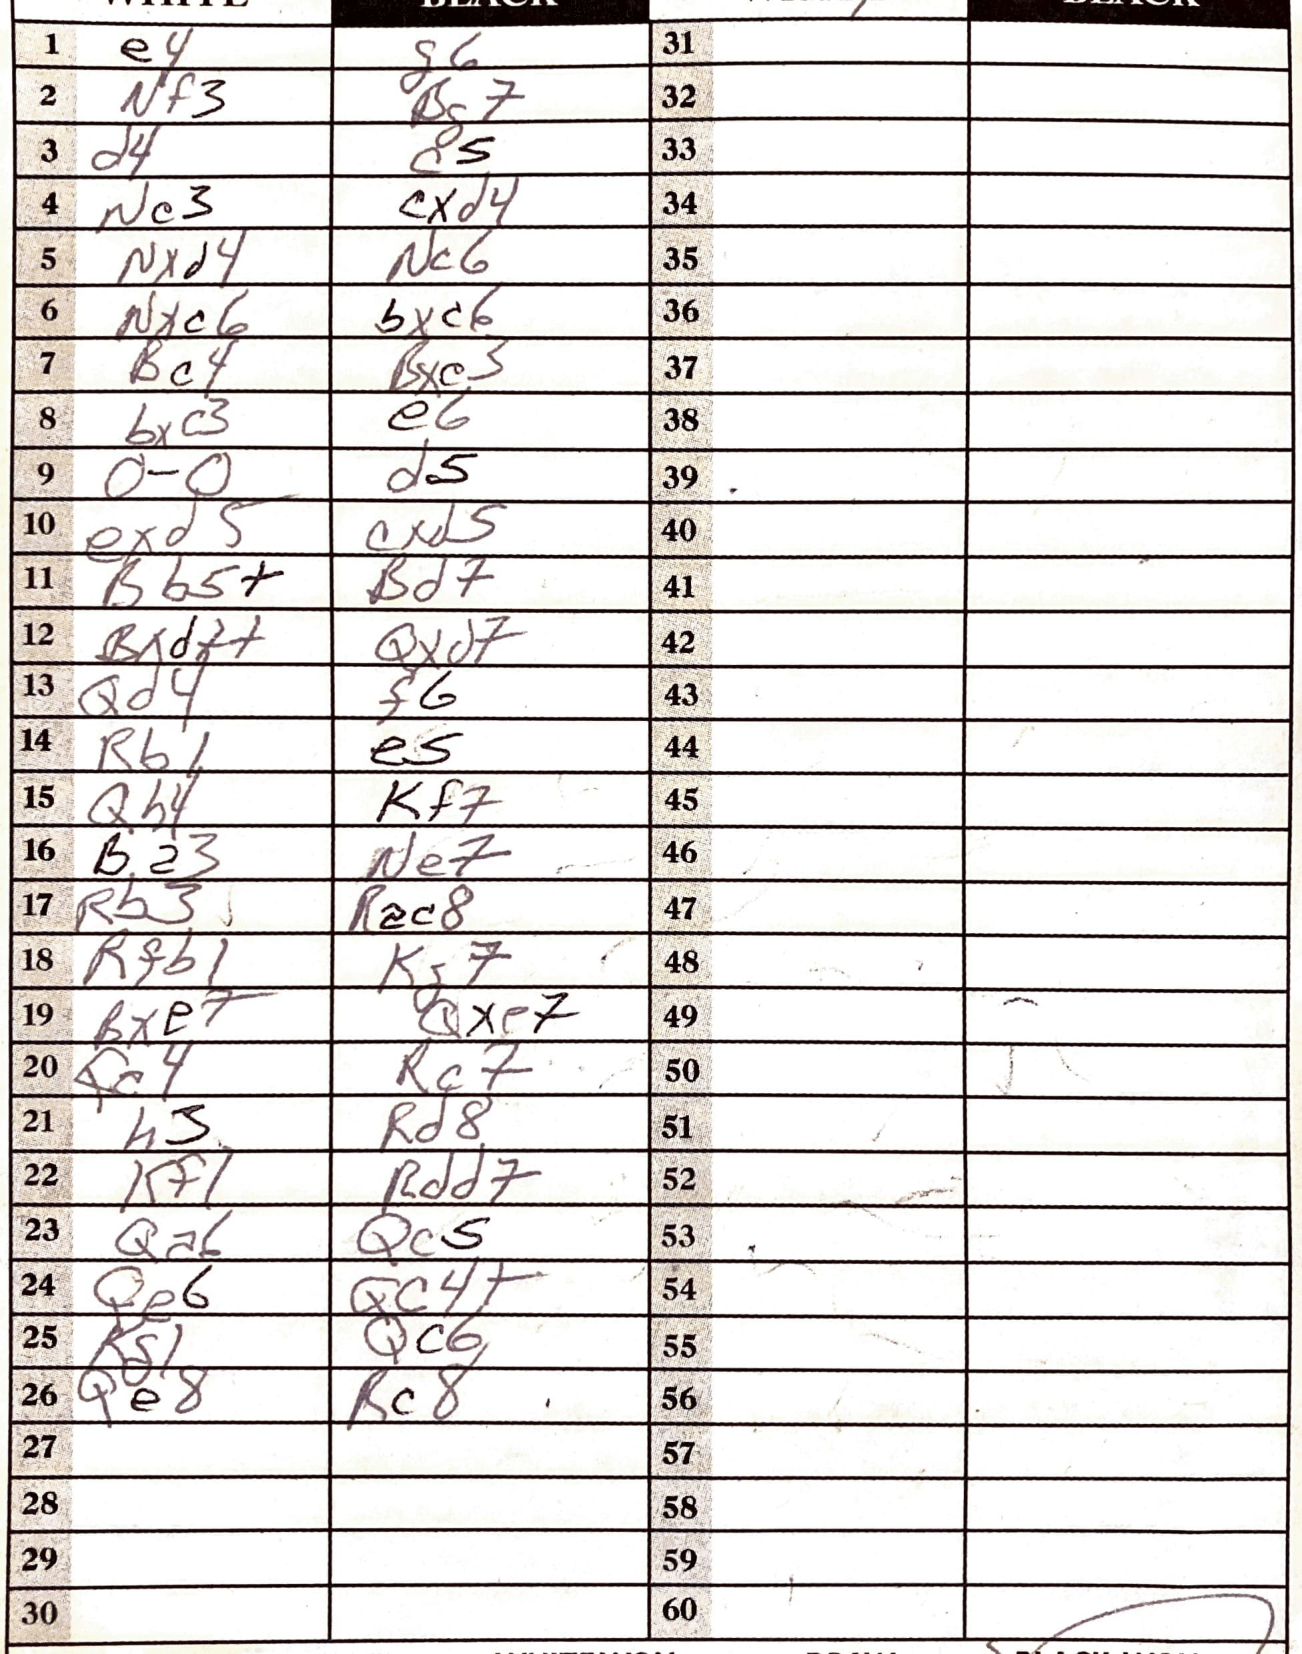 WHITE BLACK WHITE BLACK
1 e4 g6 31
2 Nf3 Bg7 32
3 d4 c5 33
4 Nc3 cxd4 34
5 Nxd4 Nc6 35
6 Nxc6 bxc6 36
7 Bc4 Bxc3 37
8 bxc3 e6 38
9 O-O d5 39
10 exd5 cxd5 40
11 Bb5+ Bd7 41
12 Bxd7+ Qxd7 42
13 Qd4 f6 43
14 Rb1 e5 44
15 Qh4 Kf7 45
16 Ba3 Ne7 46
17 Rb3 Rac8 47
18 Rfb1 Kg7 48
19 Bxe7 Qxe7 49
20 Qa4 Rc7 50
21 h3 Rd8 51
22 Kf1 Rdd7 52
23 Qa6 Qc5 53
24 Qe6 Qc4+ 54
25 Kg1 Qc6 55
26 Qe8 Rc8 56
27 57
28 58
29 59
30 60